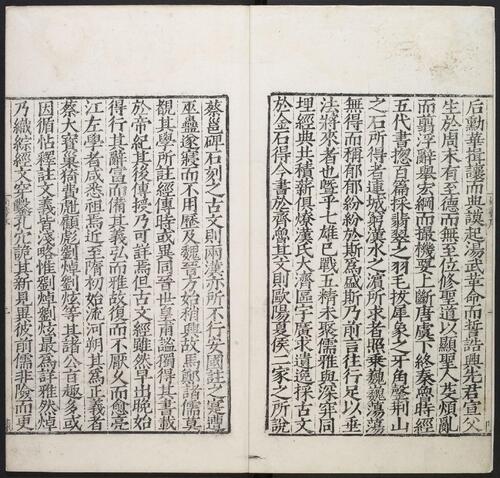 后勛華揖讓而典謨起湯武革命而誓誥興先君宣父
生於周末有至德而無至位修聖道以顯聖人芟煩亂
而翦浮辭舉宏綱而撮機要上斷唐虞下終秦魯時經
五代書揔百篇採翡翠之羽毛拔犀象之牙角罄荊山
之石所得者連城窮漢水之濱所求者照乘巍巍蕩蕩
無得而稱郁郁紛紛於斯爲盛斯乃前言往行足以垂
法將來者也曁乎七雄巳戰五精未聚儒雅與深穽同
埋經典共積薪俱燎漢氏大濟區宇廣求遺逸採古文
於金石得今書於齊魯其文則歐陽夏侯二家之所說
蔡邕碑石刻之古文則兩漢亦所不行安國註之寔遭
巫蠱遂寢而不用歷及魏晉方始稍興故馬鄭諸儒莫
覩其學所註經傳時或異同晉世皇甫謐獨得其書載
於帝紀其後傳授乃可詳焉但古文經雖然早出晚始
得行其辭富而備其義弘而雅故復而不厭久而愈亮
江左學者咸悉祖焉近至隋初始流河朔其爲正義者
蔡大寶巢猗費甝顧彪劉焯劉炫等其諸公旨趣多或
因循怗釋註文義皆淺略惟劉焯劉炫最爲詳雅然焯
乃織綜經文穿鑿孔穴詭其新見異彼前儒非險而更